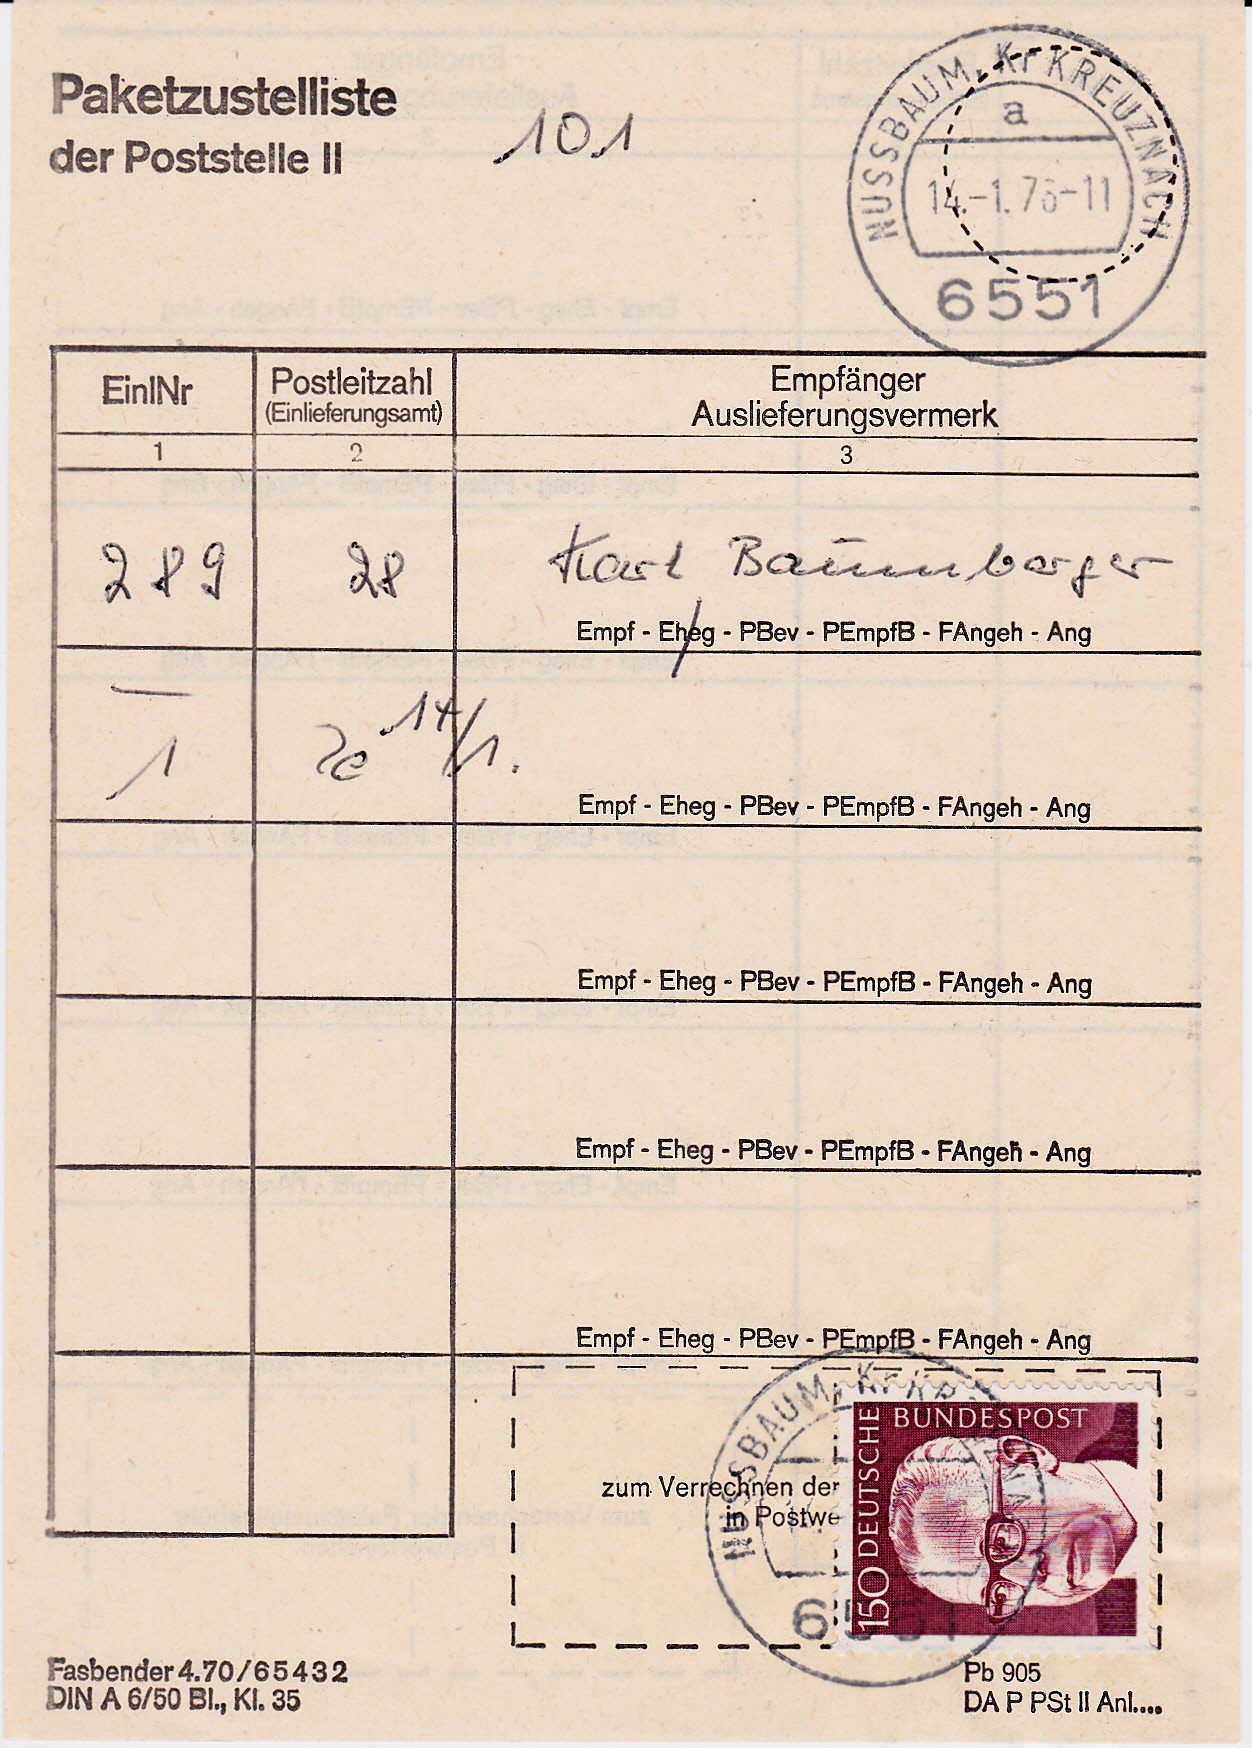 Paketzustelliste
der Poststelle II
101
NUSSBAUM, Kr KREUZNACH
a
14.-1.76-11
6551
EinlNr
Postleitzahl
(Einlieferungsamt)
Empfänger
Auslieferungsvermerk
1 2 3
289 28 Karl Baumberger
Empf - Eheg - PBev - PEmpfB - FAngeh - Ang
1 14/1.
Empf - Eheg - PBev - PEmpfB - FAngeh - Ang
Empf - Eheg - PBev - PEmpfB - FAngeh - Ang
Empf - Eheg - PBev - PEmpfB - FAngeh - Ang
Empf - Eheg - PBev - PEmpfB - FAngeh - Ang
NUSSBAUM, Kr KR
zum Verrechnen der
in Postwe
6551
150 DEUTSCHE
BUNDESPOST
Fasbender 4.70/65432
DIN A 6/50 Bl., Kl. 35
Pb 905
DA P PSt II Anl....